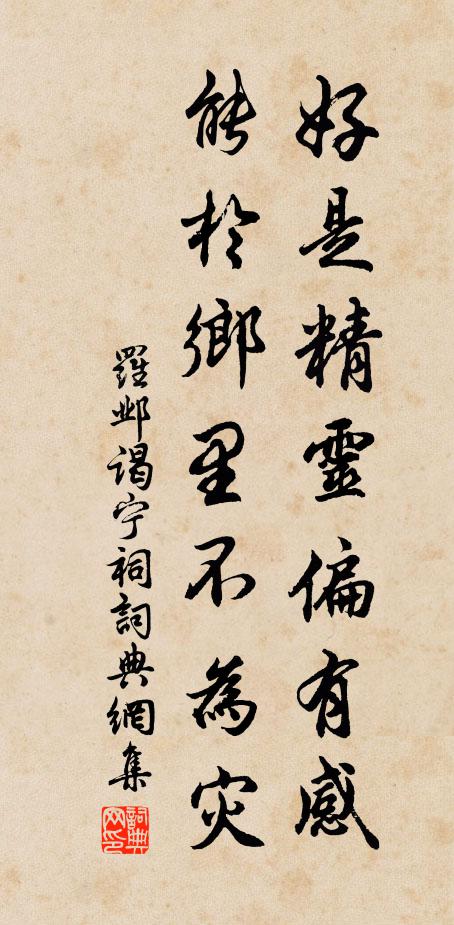 好是精靈偏有感
能於鄉里不為灾
羅邺谒宁祠詞典網集
詞典网印